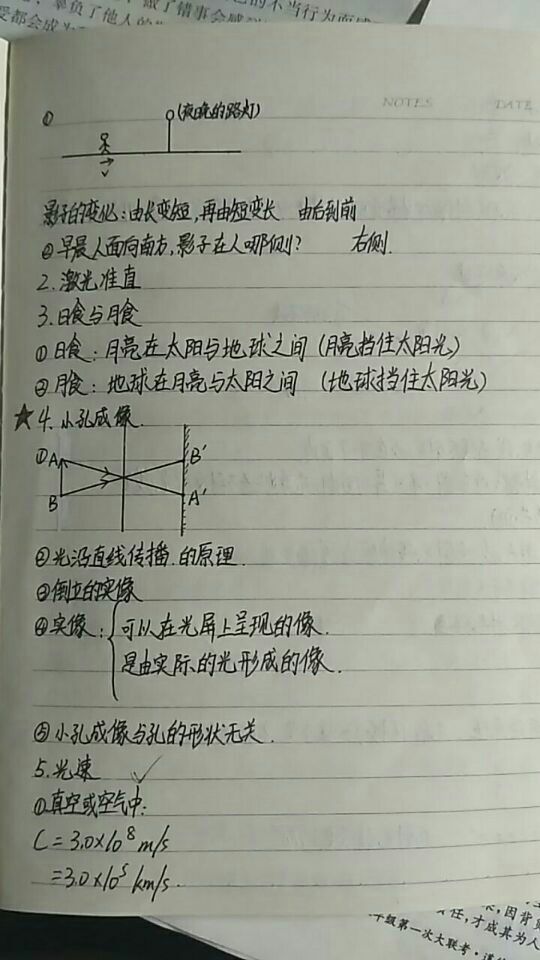 辜负了他人的
NOTES DATE
① (夜晚的路灯)
v
影子的变化:由长变短,再由短变长 由后到前
②早晨人面向南方,影子在人哪侧? 右侧.
2.激光准直
3.日食与月食
①日食:月亮在太阳与地球之间(月亮挡住太阳光)
②月食:地球在月亮与太阳之间 (地球挡住太阳光)
★4.小孔成像.
① A B'
B A'
②光沿直线传播.的原理.
③倒立的实像
④实像:{可以在光屏上呈现的像.
是由实际的光形成的像.
⑤小孔成像与孔的形状无关.
5.光速 ✓
①真空或空气中:
C=3.0×10⁸m/s
=3.0×10⁵km/s.
因背
任,才成其为人
年级第一次大联考·